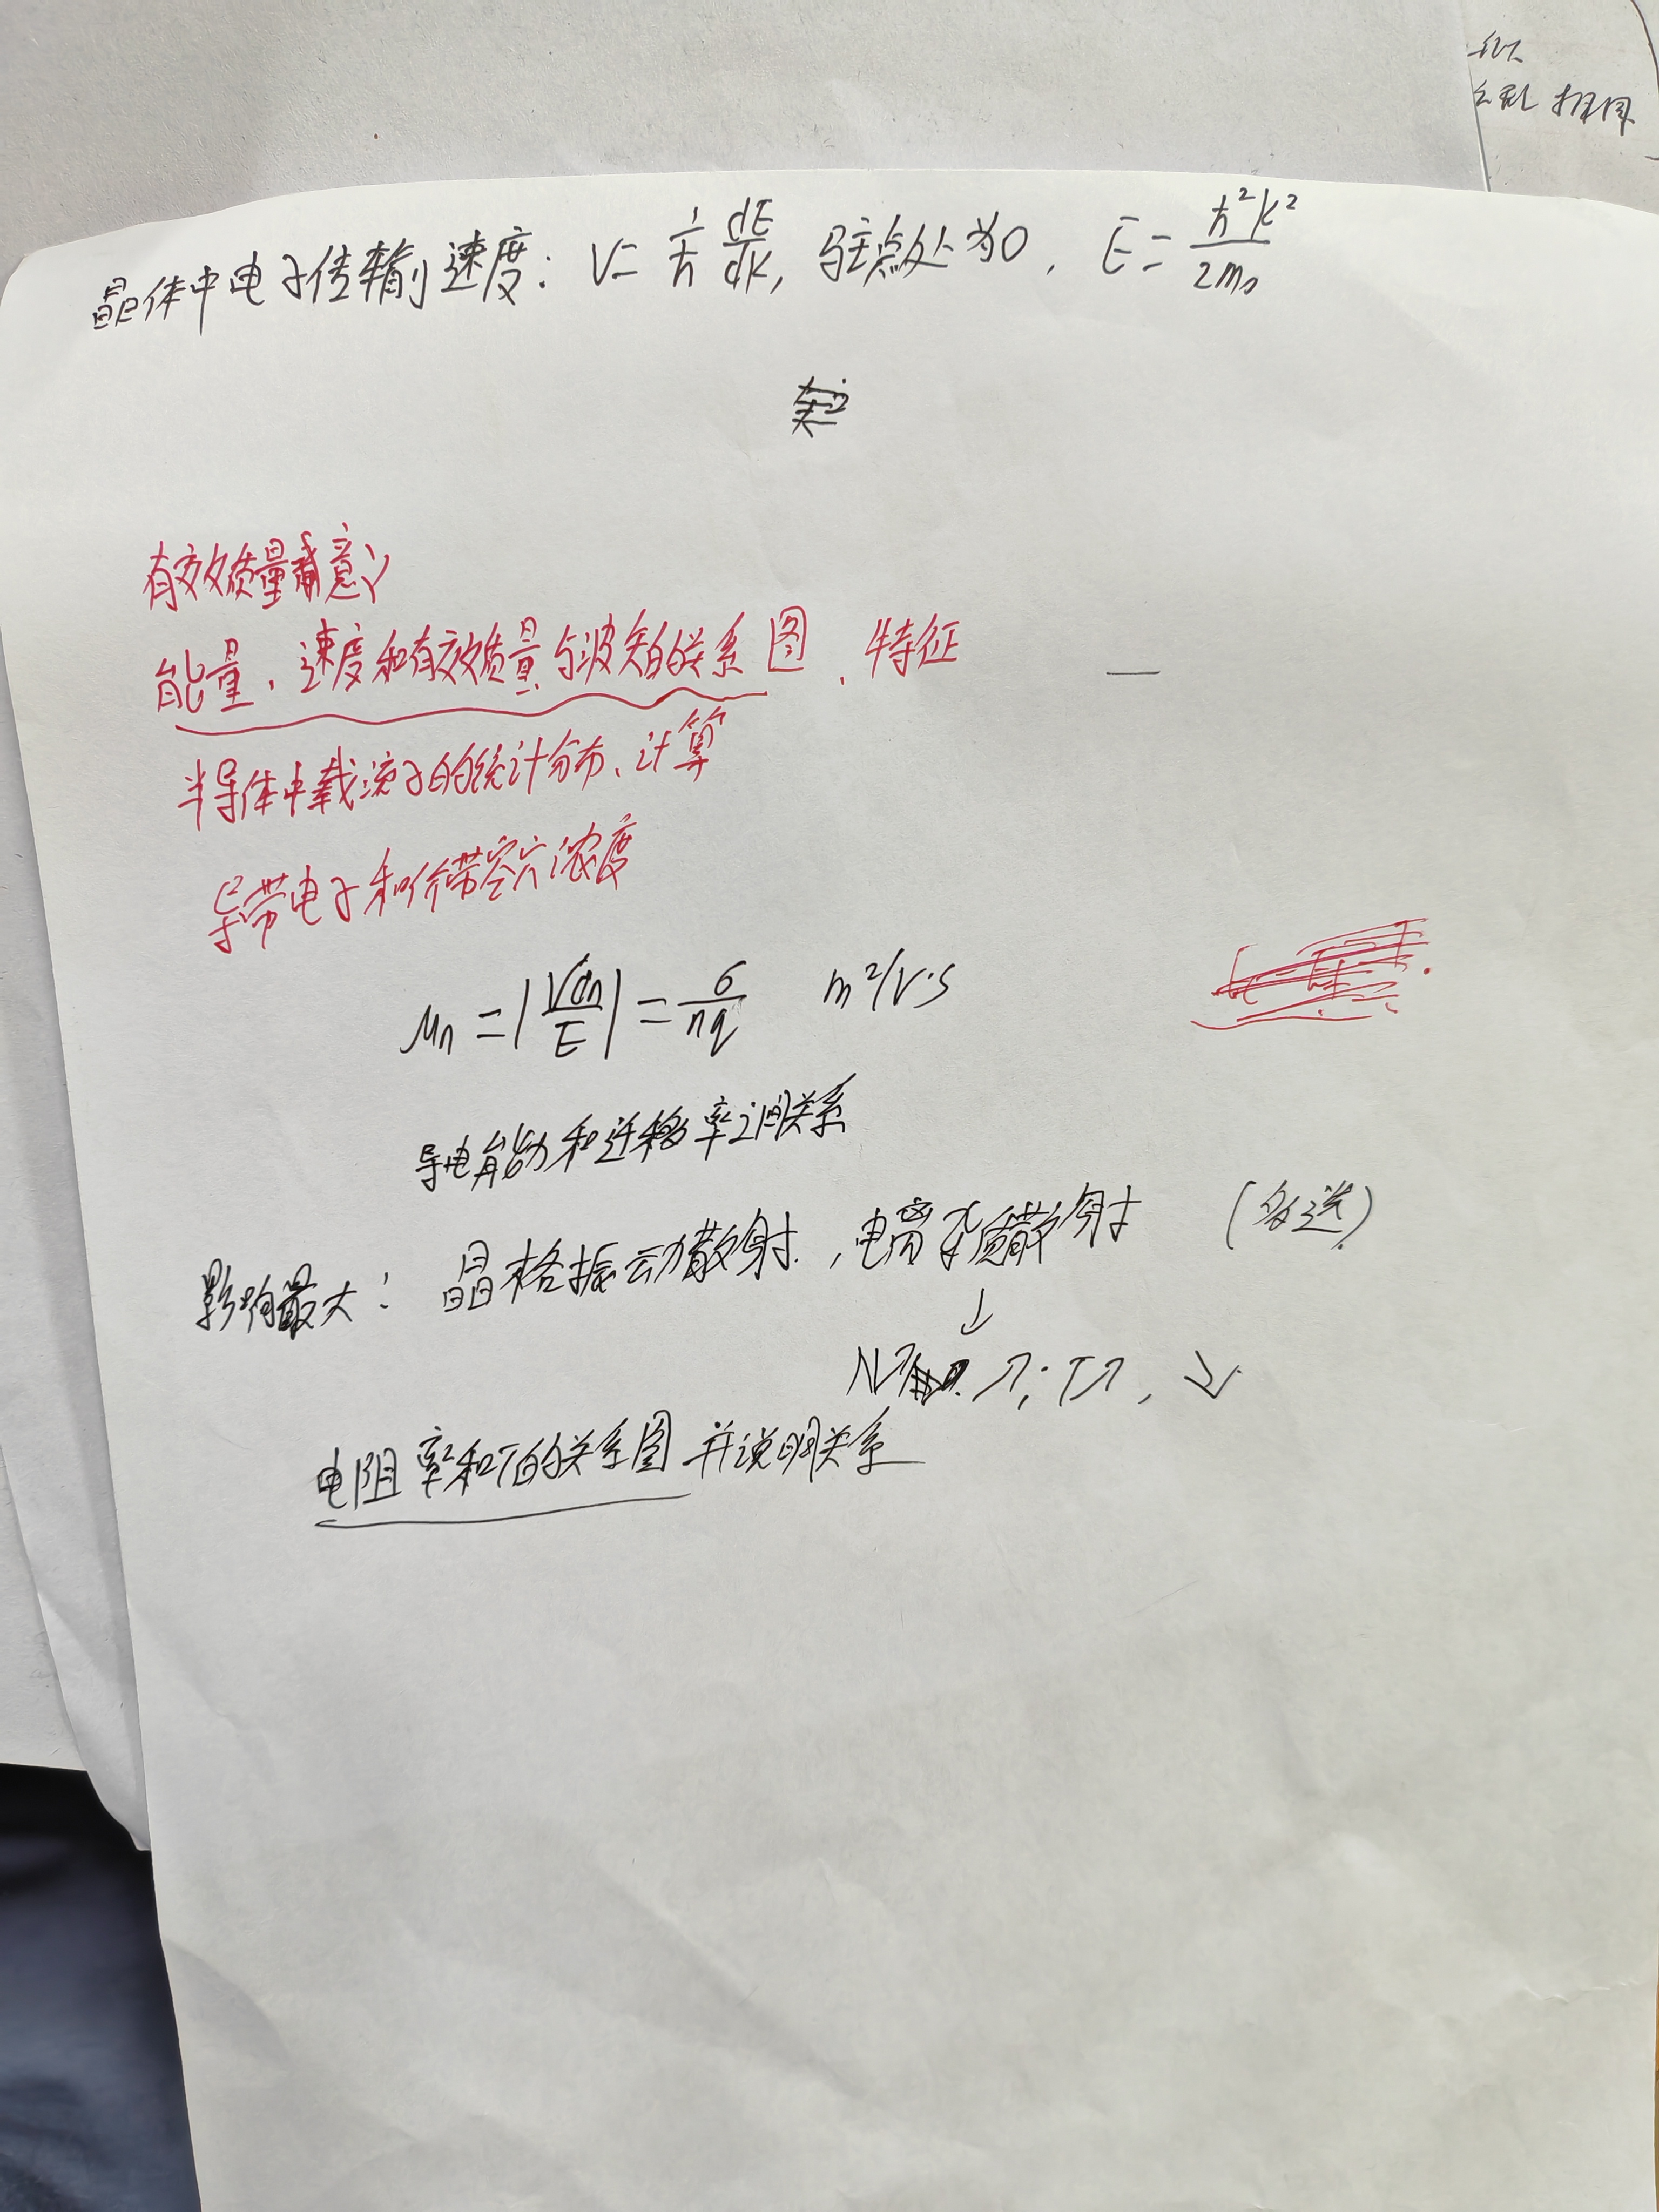 相同
晶体中电子传输速度: V = 1/ħ dE/dK, 驻点处为0, E = ħ²k²/2m₀
有效质量意义
能量、速度和有效质量与波矢的关系图、特征
半导体中载流子的统计分布、计算
导带电子和价带空穴浓度
μn = |Vdn/E| = σ/nq m²/V·s
导电能力和迁移率之间关系
影响最大: 晶格振动散射, 电离杂质散射 (多选)
↓
N↗ ↗; T↗, ↘
电阻率和T的关系图 并说明关系